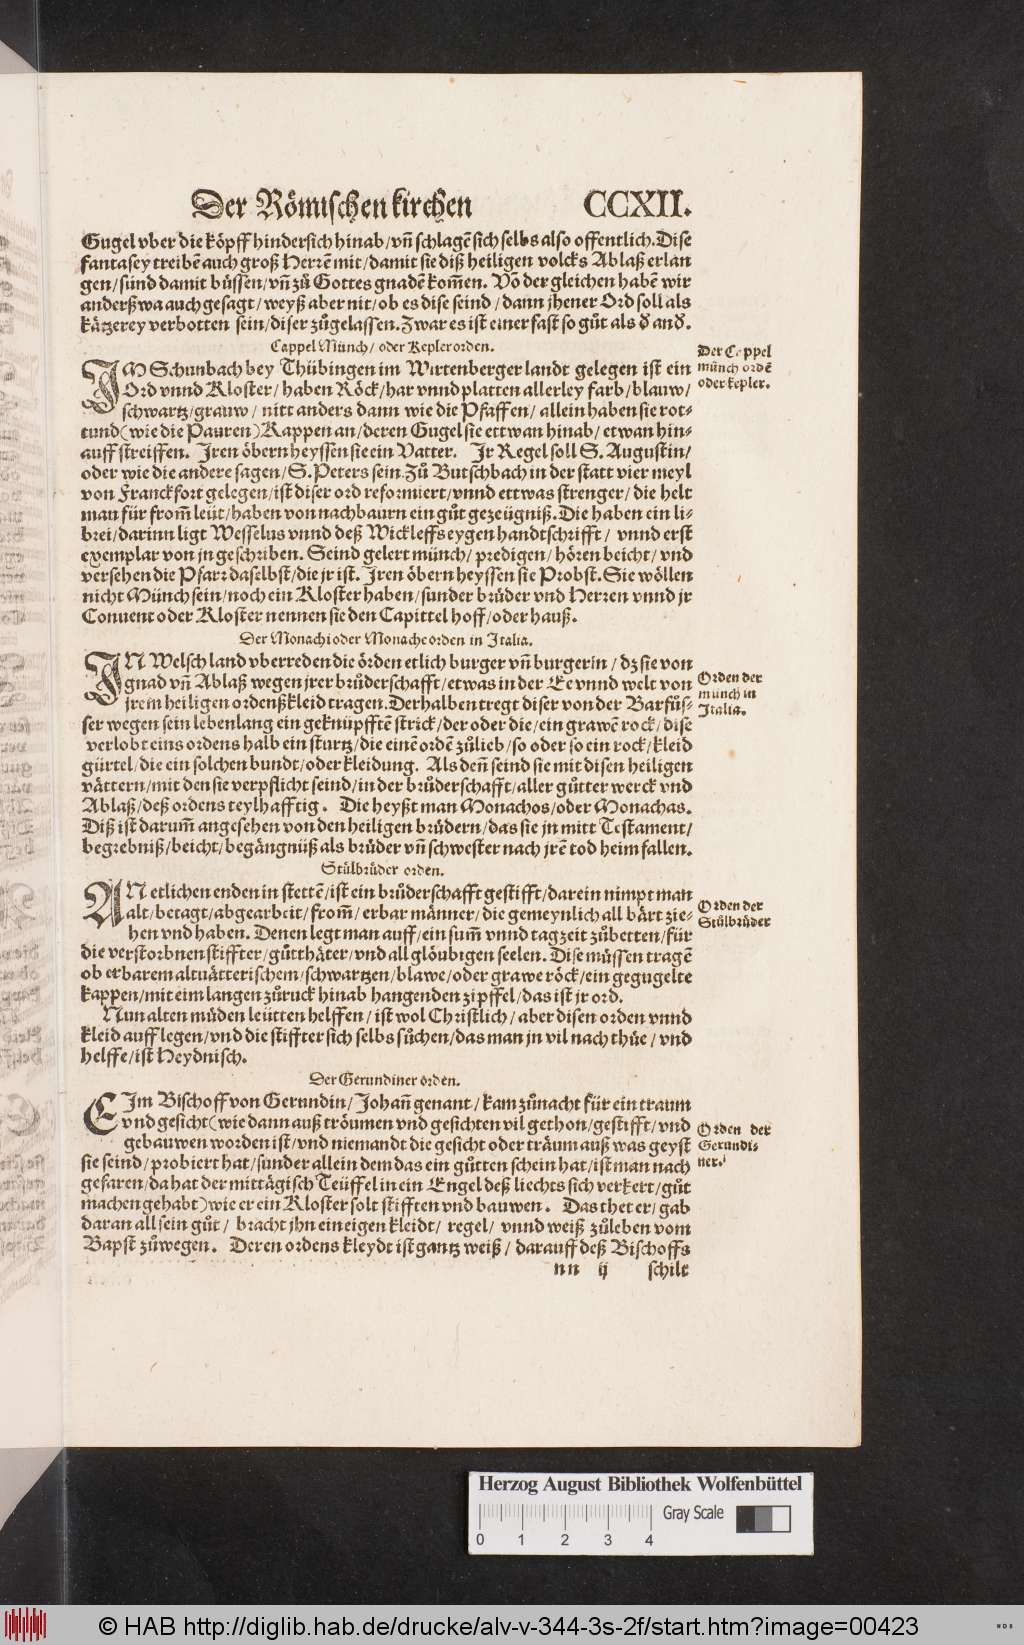 Der Römischen kirchen CCXII.
Gugel vber die köpff hindersich hinab/vn̄ schlagē sich selbs also offentlich. Dise
fantasey treibē auch groß Herrē mit/damit sie diß heiligen volcks Ablaß erlan
gen/sünd damit bůssen/vn̄ zů Gottes gnadē kom̄en. Võ der gleichen habē wir
anderßwa auch gesagt/weyß aber nit/ob es dise seind/dann jhener Ord soll als
kätzerey verbotten sein/diser zůgelassen. Zwar es ist einer fast so gůt als d̄ and̄.
Cappel Münch/ oder Kepler orden.
Der Coppel
münch ordē
oder kepler.
IM Schunbach bey Thübingen im Wirtenberger landt gelegen ist ein
Ord vnnd Kloster/haben Röck/har vnnd platten allerley farb/blauw/
schwartz/grauw/ nitt anders dann wie die Pfaffen/allein haben sie rot-
tund (wie die Pauren) Kappen an/deren Gugel sie ettwan hinab/etwan hin-
auff streiffen. Iren öbern heyssen sie ein Vatter. Ir Regel soll S. Augustin/
oder wie die andere sagen/S. Peters sein. Zů Butschbach in der statt vier meyl
von Franckfort gelegen/ist diser ord reformiert/vnnd ettwas strenger/die helt
man für from̄ leüt/haben von nachbaurn ein gůt gezeügniß. Die haben ein li-
brei/darinn ligt Wesselus vnnd deß Wickleffs eygen handtschrifft/ vnnd erst
exemplar von jn geschriben. Seind gelert münch/predigen/hören beicht/vnd
versehen die Pfarr daselbst/die jr ist. Iren öbern heyssen sie Probst. Sie wöllen
nicht Münch sein/noch ein Kloster haben/sunder brüder vnd Herren vnnd jr
Conuent oder Kloster nennen sie den Capittel hoff/oder hauß.
Der Monachi oder Monache orden in Italia.
Orden der
münch in
Italia.
IN Welsch land vberreden die örden etlich burger vn̄ burgerin/dz sie von
gnad vn̄ Ablaß wegen jrer brůderschafft/etwas in der Ee vnnd welt von
jrem heiligen ordenßkleid tragen. Derhalben tregt diser von der Barfůs-
ser wegen sein lebenlang ein geknüpfftē strick/der oder die/ein grawē rock/dise
verlobt eins ordens halb ein sturtz/die einē ordē zůlieb/so oder so ein rock/kleid
gürtel/die ein solchen bundt/oder kleidung. Als den̄ seind sie mit disen heiligen
vättern/mit den sie verpflicht seind/in der brůderschafft/aller gůtter werck vnd
Ablaß/deß ordens teylhafftig. Die heyßt man Monachos/oder Monachas.
Diß ist darum̄ angesehen von den heiligen brüdern/das sie jn mitt Testament/
begrebniß/beicht/begängnüß als brüder vn̄ schwester nach jrē tod heim fallen.
Stůlbrůder orden.
Orden der
Stůlbrüder
AN etlichen enden in stettē/ist ein brůderschafft gestifft/darein nimpt man
alt/betagt/abgearbeit/from̄/erbar männer/die gemeynlich all bärt zie-
hen vnd haben. Denen legt man auff/ein sum̄ vnnd tagzeit zůbetten/für
die verstorbnen stiffter/gůtthäter/vnd all glöubigen seelen. Dise müssen tragē
ob erbarem altuätterischem/schwartzen/blawe/oder grawe röck/ein gegugelte
kappen/mit eim langen zůruck hinab hangenden zipffel/das ist jr ord.
Nun alten müden leütten helffen/ist wol Christlich/aber disen orden vnnd
kleid auff legen/vnd die stiffter sich selbs sůchen/das man jn vil nach thüe/vnd
helffe/ist Heydnisch.
Der Gerundiner orden.
Orden der
Gerundi-
ner.
EIm Bischoff von Gerundin/Johan̄ genant/kam zůnacht für ein traum
vnd gesicht (wie dann auß tröumen vnd gesichten vil gethon/gestifft/vnd
gebauwen worden ist/vnd niemandt die gesicht oder träum auß was geyst
sie seind/probiert hat/sunder allein dem das ein gůtten schein hat/ist man nach
gefaren/da hat der mittägisch Teüffel in ein Engel deß liechts sich verkert/gůt
machen gehabt) wie er ein Kloster solt stifften vnd bauwen. Das thet er/gab
daran all sein gůt/ bracht jhn ein eigen kleidt/ regel/ vnnd weiß zůleben vom
Bapst zůwegen. Deren ordens kleydt ist gantz weiß/darauff deß Bischoffs
nn ij schilt
Herzog August Bibliothek Wolfenbüttel
Gray Scale
0 1 2 3 4
© HAB http://diglib.hab.de/drucke/alv-v-344-3s-2f/start.htm?image=00423